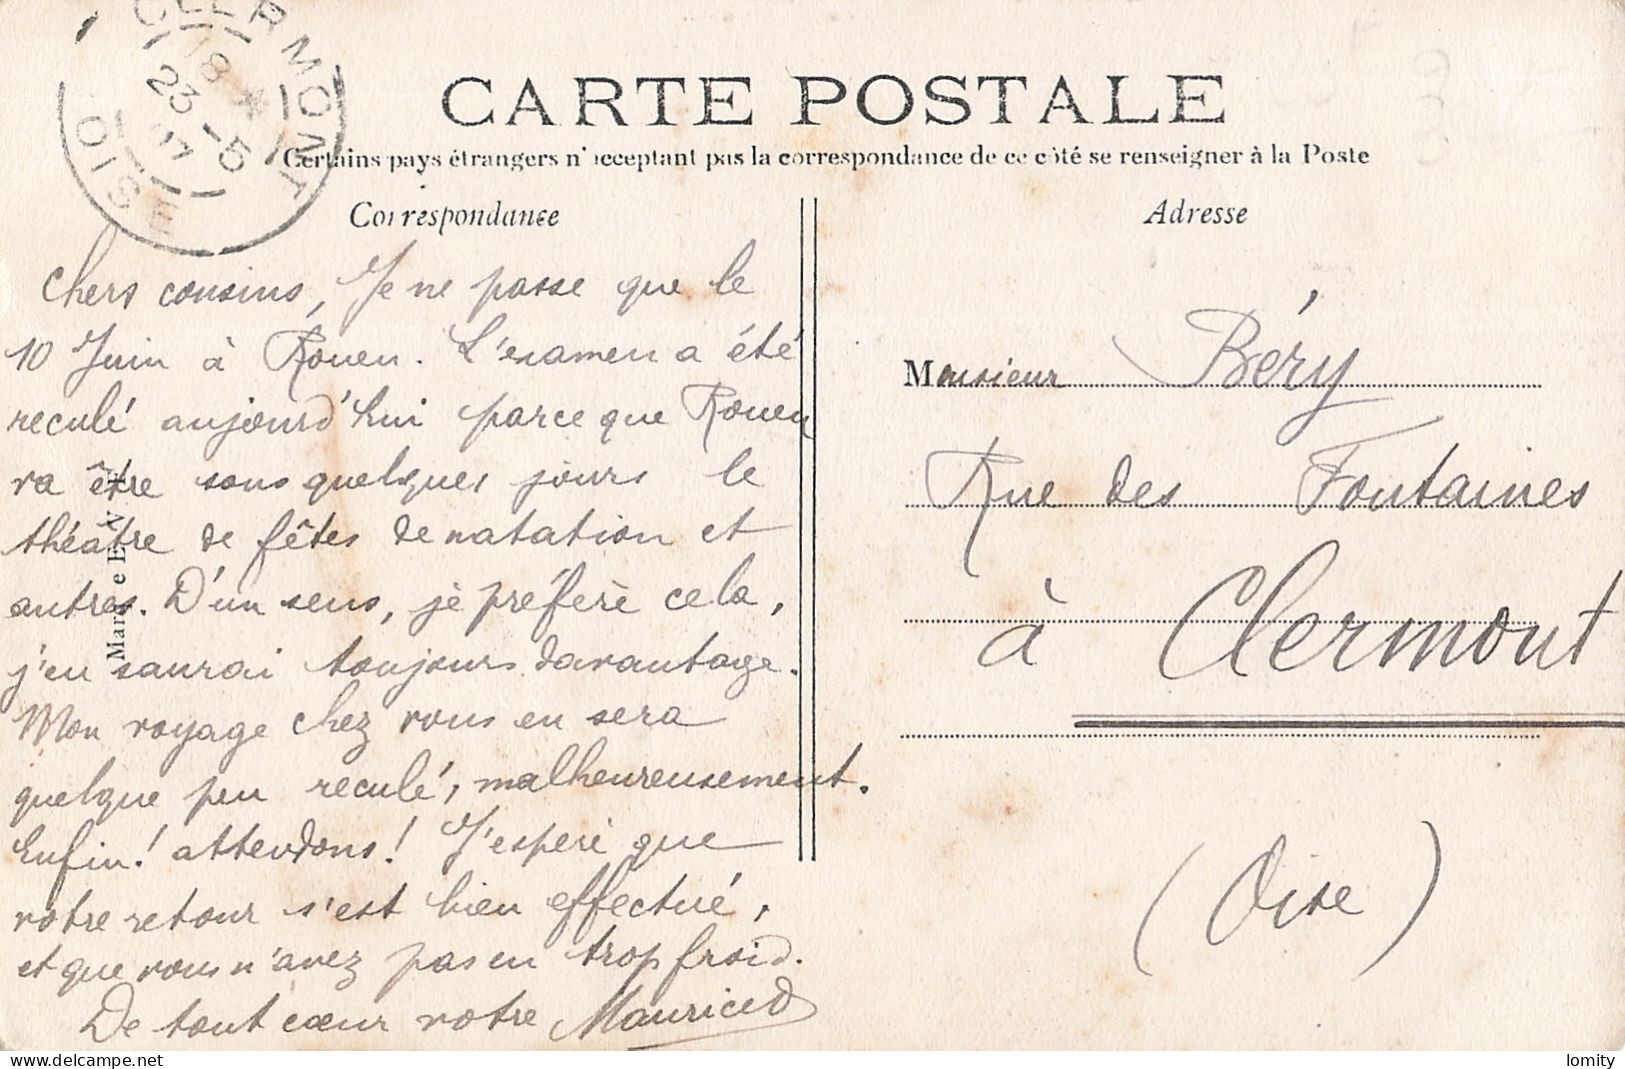 CLERMONT
18
23-5
17
OISE
CARTE POSTALE
Certains pays étrangers n'acceptant pas la correspondance de ce côté se renseigner à la Poste
Correspondance
Chers cousins, Je ne passe que le
10 Juin à Rouen. L'examen a été
reculé aujourd'hui parce que Rouen
va être sous quelques jours le
théâtre de fêtes de natation et
autres. D'un sens, je préfère cela,
j'en saurai toujours davantage.
Mon voyage chez vous en sera
quelque peu reculé, malheureusement.
Enfin! attendons! J'espère que
votre retour s'est bien effectué,
et que vous n'avez pas eu trop froid.
De tout cœur votre Maurice
Adresse
Monsieur Béry
Rue des Fontaines
à Clermont
(Oise)
delcampe.net
lomity